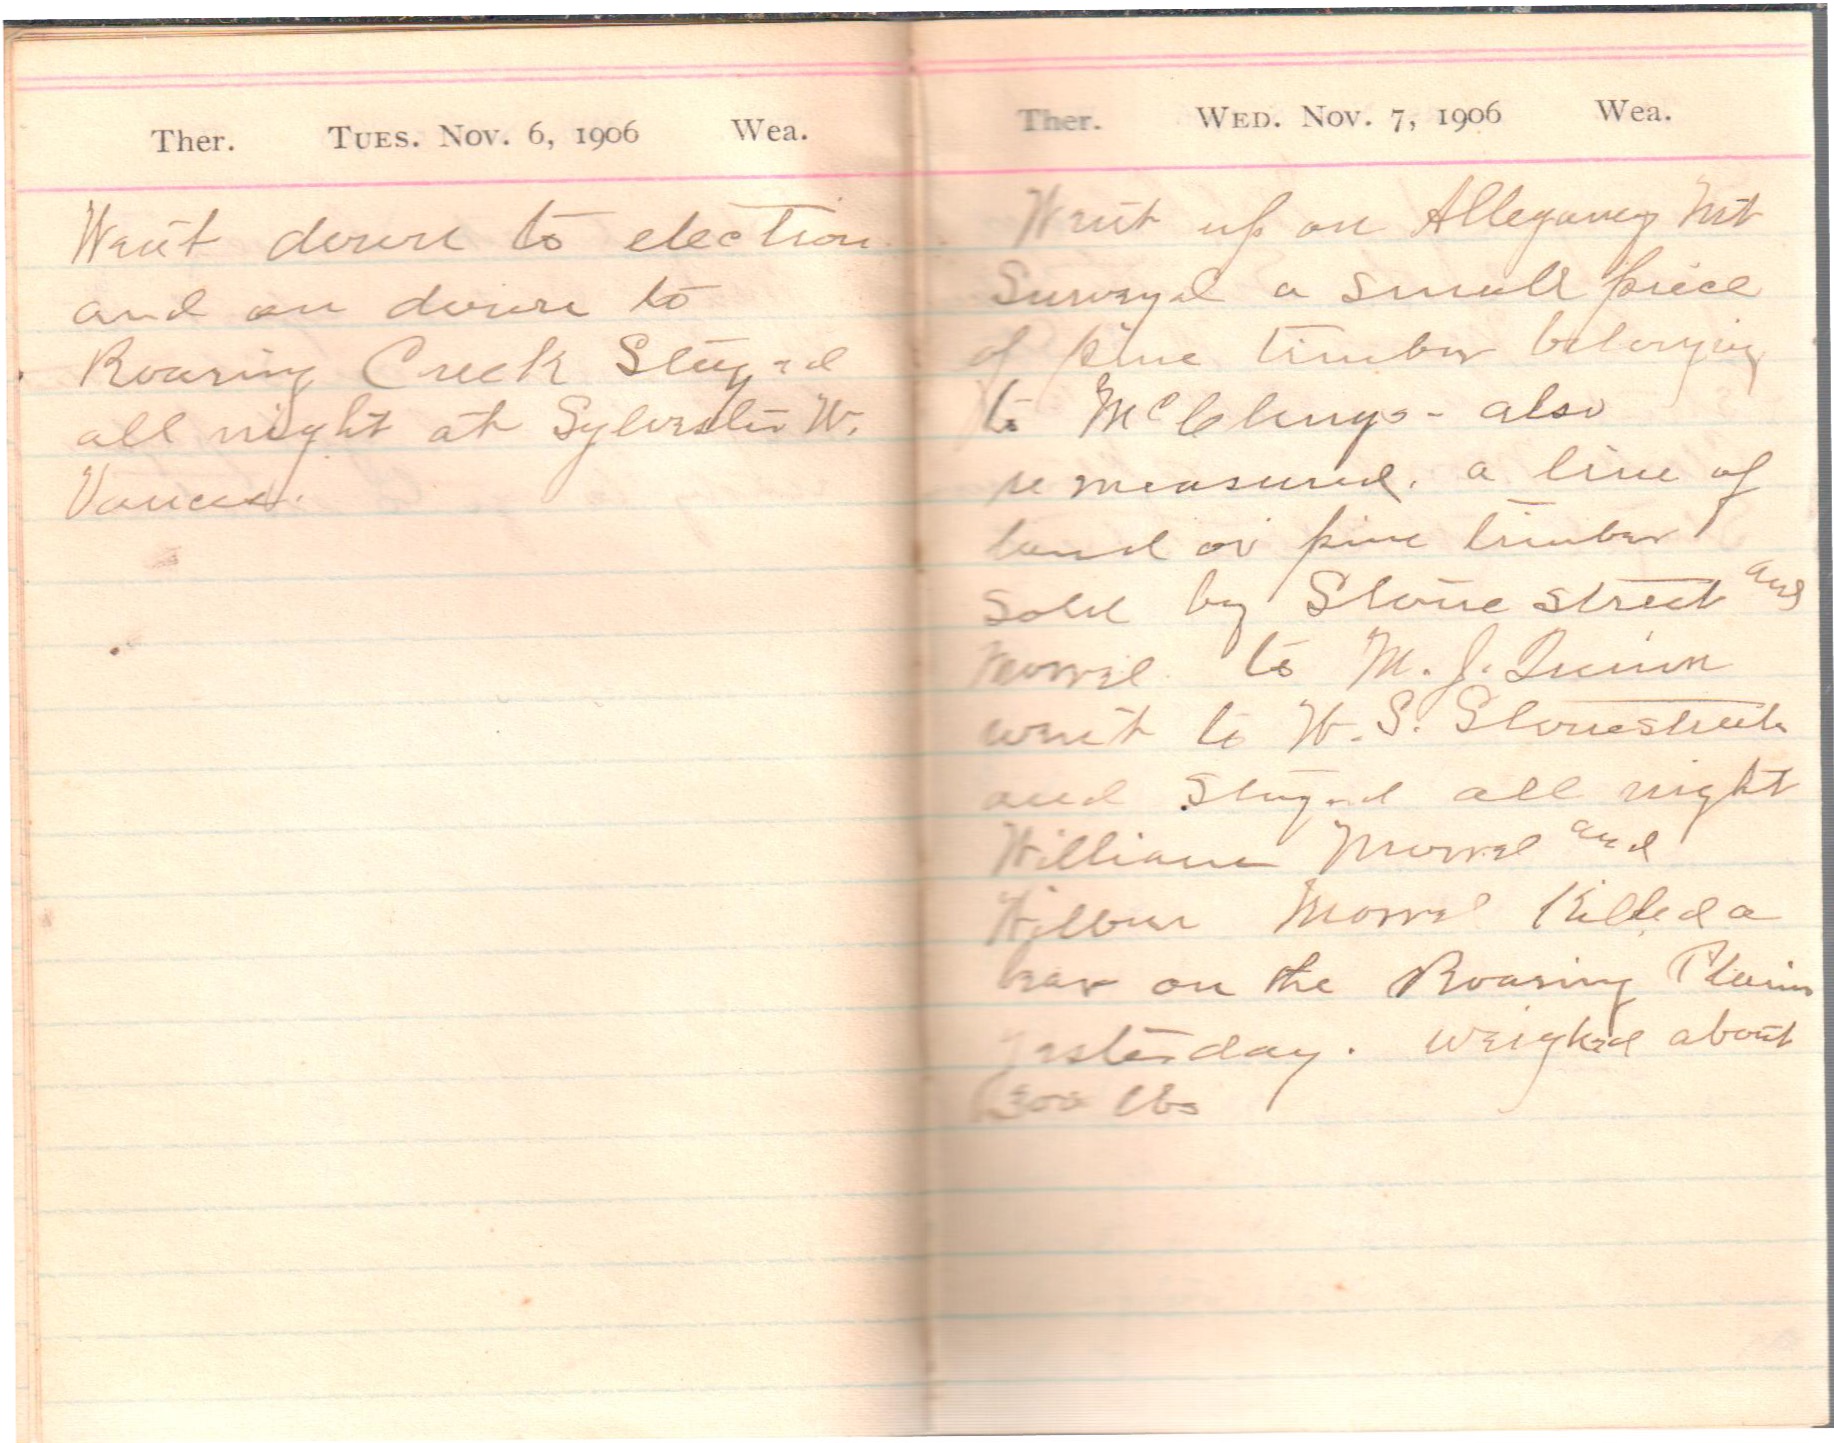 Ther. TUES. NOV. 6, 1906 Wea.
Went down to election
and on down to
Roaring Creek Stayed
all night at Sylvester W.
Vances.
Ther. WED. NOV. 7, 1906 Wea.
Went up on Allegany Mt
Surveyed a small piece
of pine timber belonging
to McClungs - also
re measured. a line of
land or pine timber
sold by Stone street and
Morrel to M. J. Quinn
went to W. S. Stonestreets
and stayed all night
William Morrel and
Wilbur Morrel Killed a
bear on the Roaring Plains
yesterday. weighed about
300 lbs